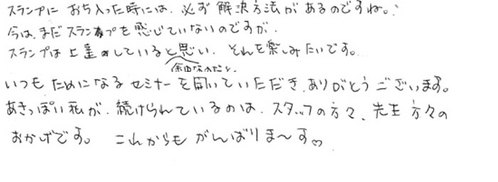 スランプに おち入った時には、必ず 解決方法が あるのですね。
今は、まだ スランプを 感じていないのですが、
スランプは 上達 していると 思い、それを 楽しみたいです。
余裕な人だい
いつも ためになる セミナーを 開いていただき、ありがとう ございます。
あきっぽい 私が、続けられているのは、スタッフの方々、先生 方々の
おかげです。 これからも がんばりま〜す♡